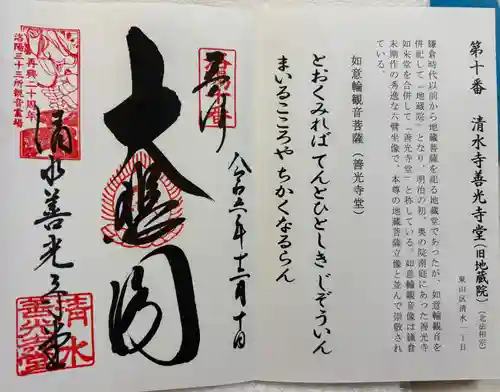 第十番　清水寺善光寺堂(旧地蔵院)（北法相宗）
東山区清水一丁目
鎌倉時代以前から地蔵菩薩を祀る地蔵堂であったが、如意輪観音を
併祀して「地蔵院」となり、明治の初、奥の院南庭にあった善光寺
如来堂を合併して「善光寺堂」と称している。如意輪観音像は鎌倉
末期作の秀逸な六臂坐像で、本尊の地蔵菩薩立像と並んで崇敬され
ている。
如意輪観音菩薩（善光寺堂）
とおくみれば てんとひとしき じぞういん
まいるこころや ちかくなるらん
奉拝
令和五年十二月十日
大悲閣
再興二十周年
洛陽三十三所観音霊場
清水善光寺堂
清水
善光寺堂